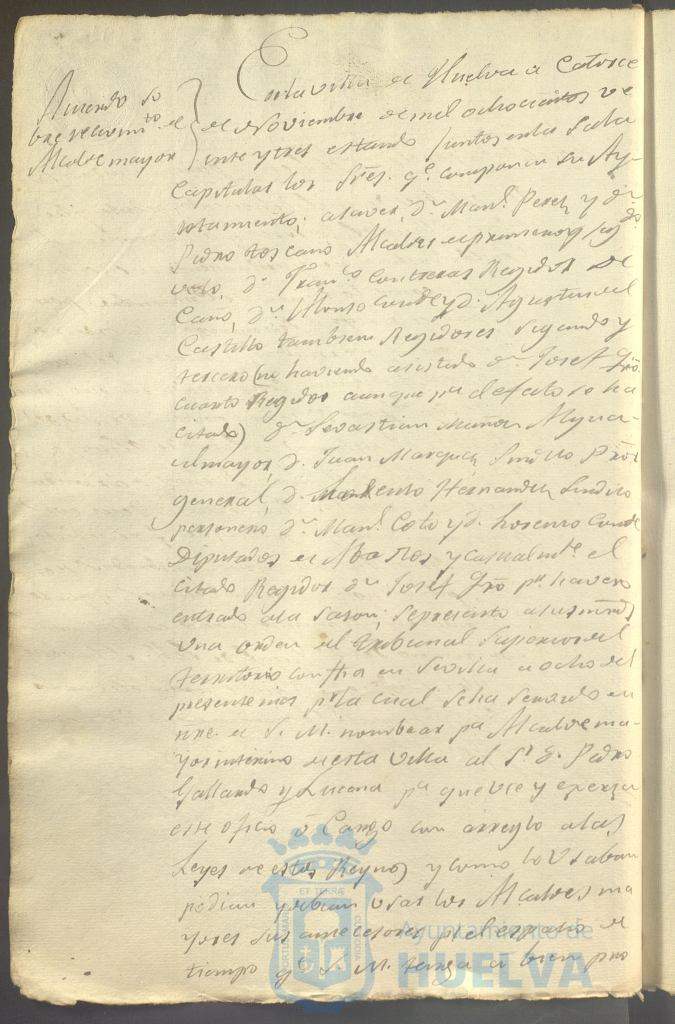 Acuerdo so
bre recivim.to del
Alcalde mayor
En la villa de Huelva a catorce
de Noviembre de mil ochocientos ve
inte y tres estando juntos en la Sala
Capitular los Sres. q.e componen su Ay-
untamiento; a saver, D.n Man.l Perez y D.n
Pedro Toscano Alcaldes de primero y seg.do
voto, D.n Fran.co Contreras Regidor De
cano, D.n Alonso Conde y D. Agustin del
Castillo tambien Regidores Segundo y
tercero (no haviendo asistido D.n Josef
cuarto Regidor aunque p.a el efecto se ha
citado) D.n Sevastian Muñoz Algua-
cil mayor, D. Juan Marquez Sindico Pror
general, D. Hernandez Sindico
personero D.n Man.l Coto y D. Lorenzo Conde
Diputados de Abastos y casualm.te el
citado Regidor D.n Josef p.r haver
entrado a la sason; se presento a sus mrds
una orden del Tribunal Superior del
territorio con fha en Sevilla a ocho del
presente mes p.r la cual se ha servido en
nre. de S. M. nombrar p.a Alcalde ma-
yor interino de esta villa al S.r D. Pedro
Gallardo y Lucena p.a que use y exerza
este oficio o Cargo con arreglo a las
Leyes de estos Reynos y como lo usaban
podian y debian usar los Alcaldes ma
yores sus antecesores p.r el espacio de
tiempo q.e S. M. tenga a bien pro
ET TERRÆ
CUSTODIA
Ayuntamiento de
HUELVA